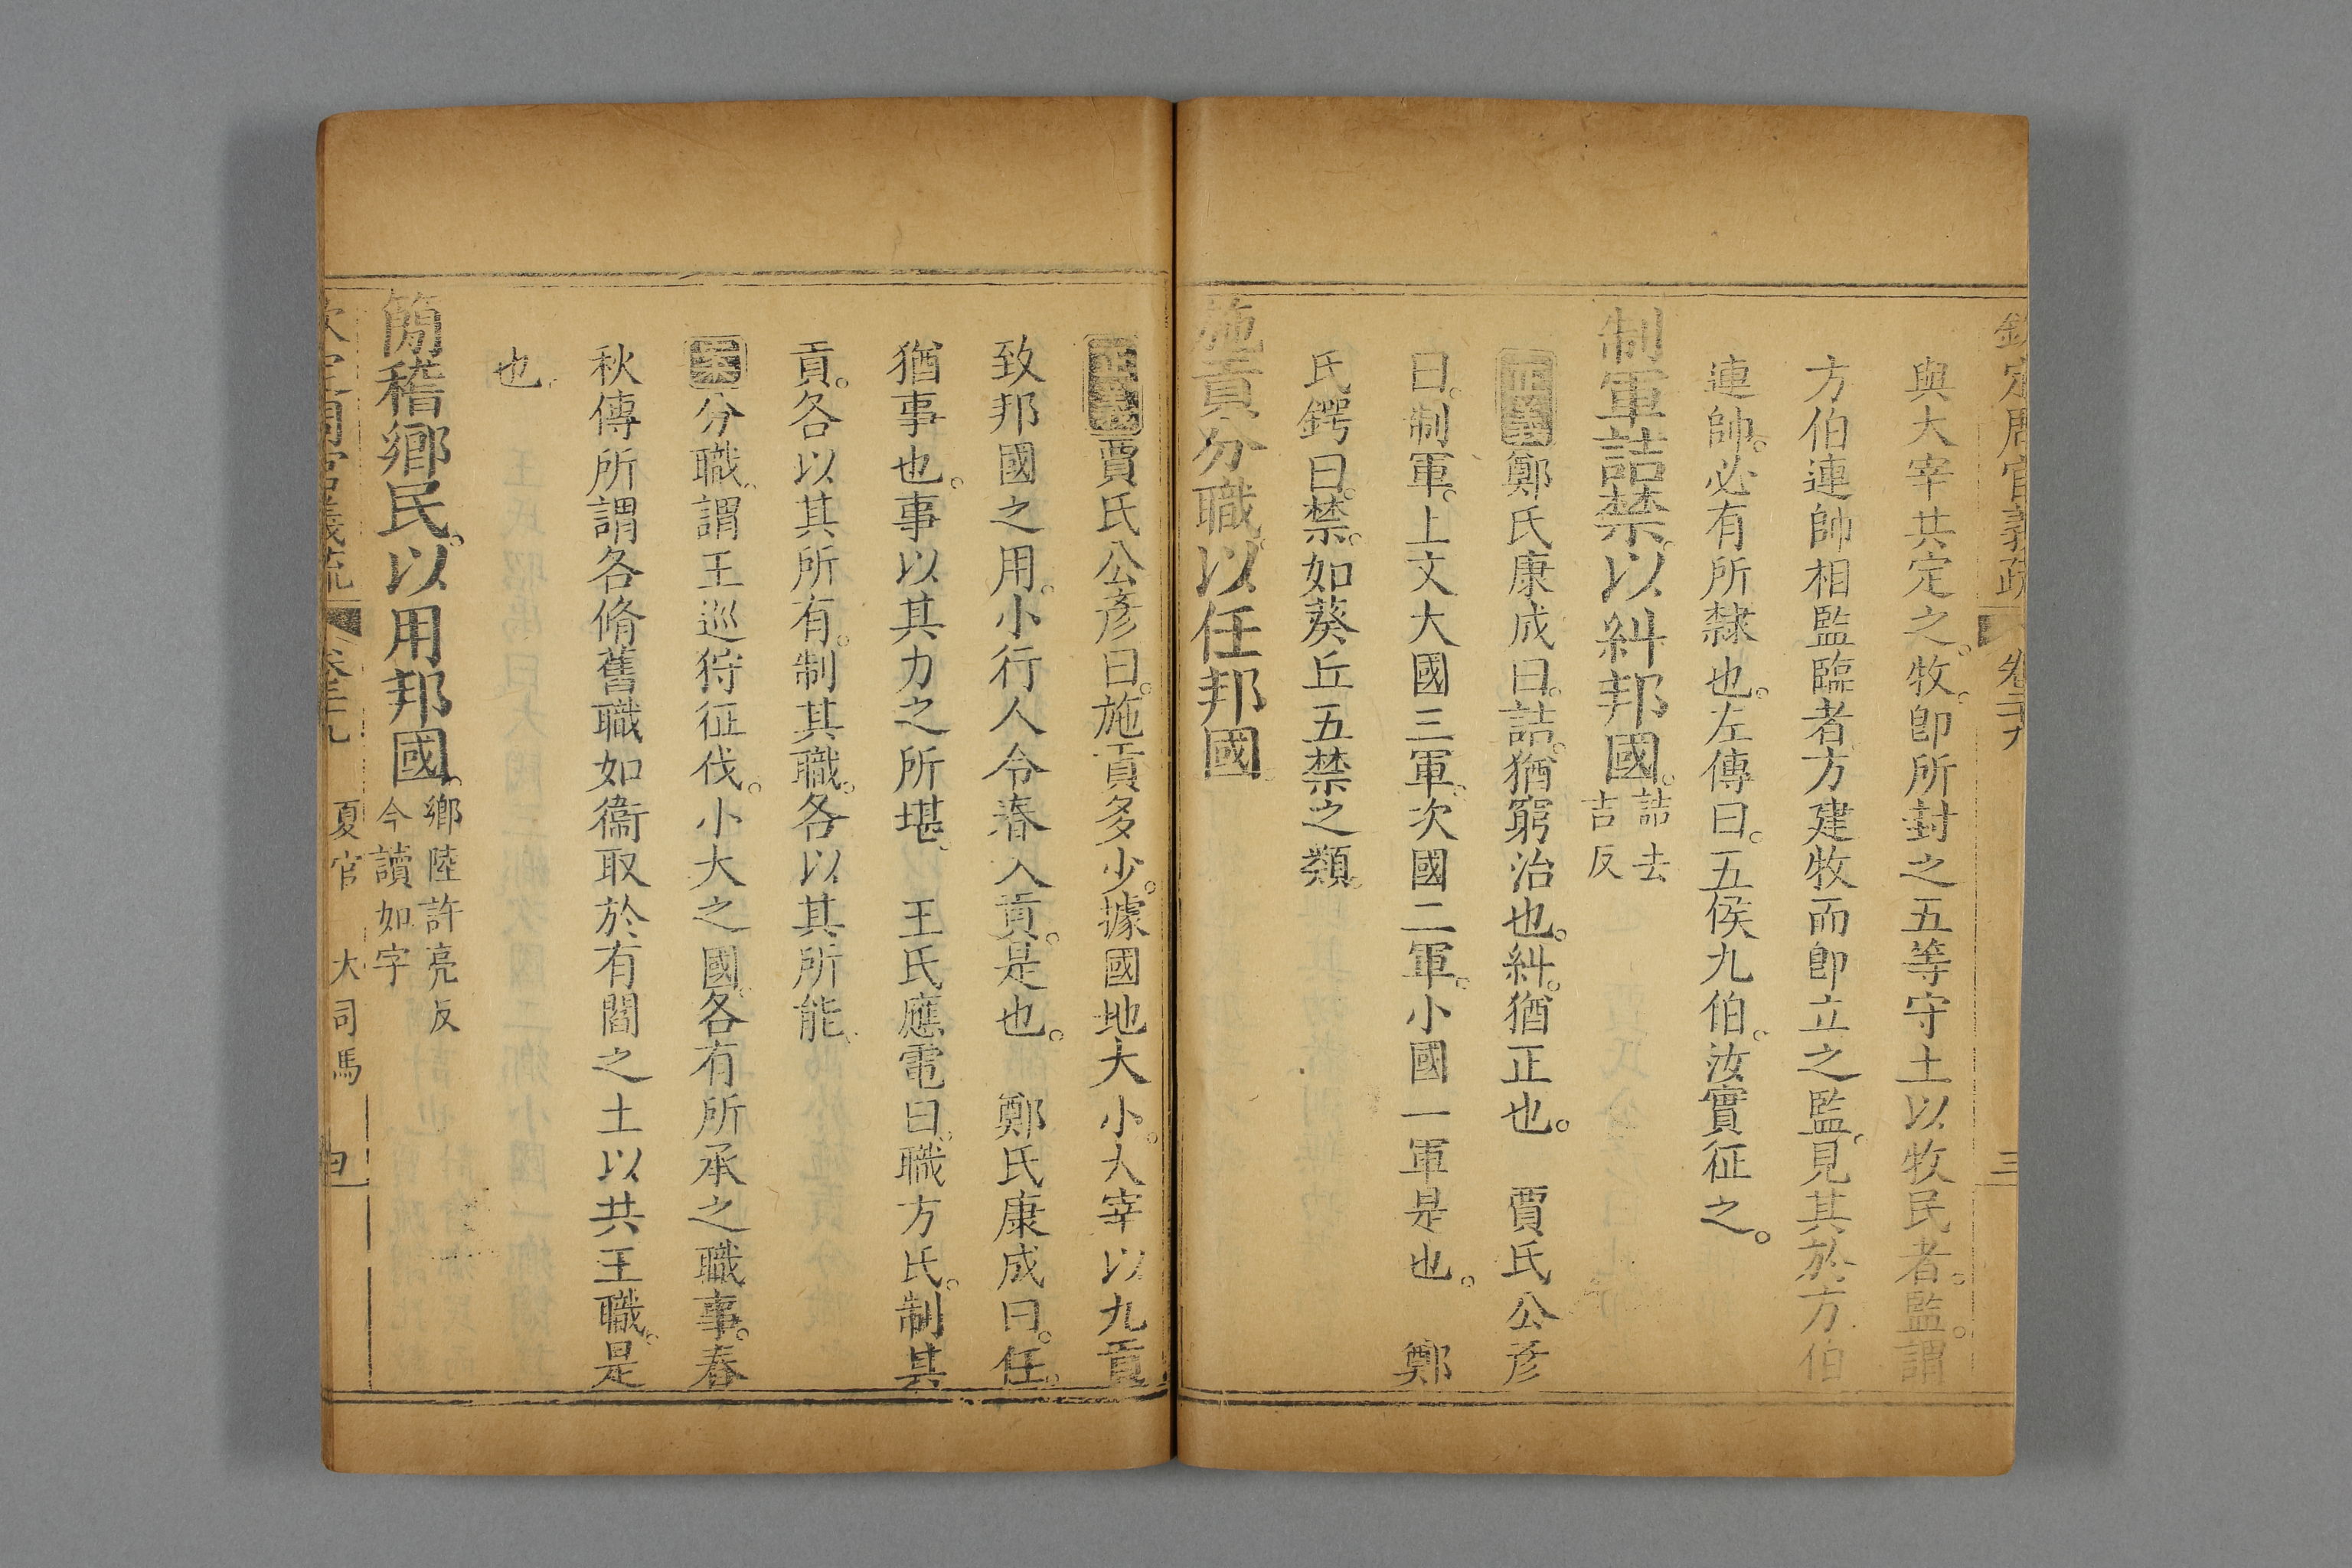 欽定周官義疏 卷二十九 三
與大宰共定之。牧。卽所封之五等守土以牧民者。監。謂
方伯連帥相監臨者方建牧而卽立之監。見其於方伯
連帥。必有所隸也。左傳曰。五侯九伯。汝實征之。
制軍詰禁。以糾邦國。詰去吉反
正義鄭氏康成曰。詰。猶窮治也。糾。猶正也。 賈氏公彥
曰。制軍。上文大國三軍。次國二軍。小國一軍是也。 鄭
氏鍔曰。禁。如葵丘五禁之類。
施貢分職。以任邦國。
正義賈氏公彥曰。施貢多少。據國地大小。大宰以九貢
致邦國之用。小行人令春入貢。是也。 鄭氏康成曰。任。
猶事也。事以其力之所堪。 王氏應電曰。職方氏。制其
貢。各以其所有。制其職。各以其所能。
分職。謂王巡狩征伐。小大之國。各有所承之職事。春
秋傳所謂各脩舊職如衞取於有閻之土以共王職。是
也。
簡稽鄉民。以用邦國。鄉陸許亮反今讀如字
欽定周官義疏 卷二十九 夏官 大司馬 四